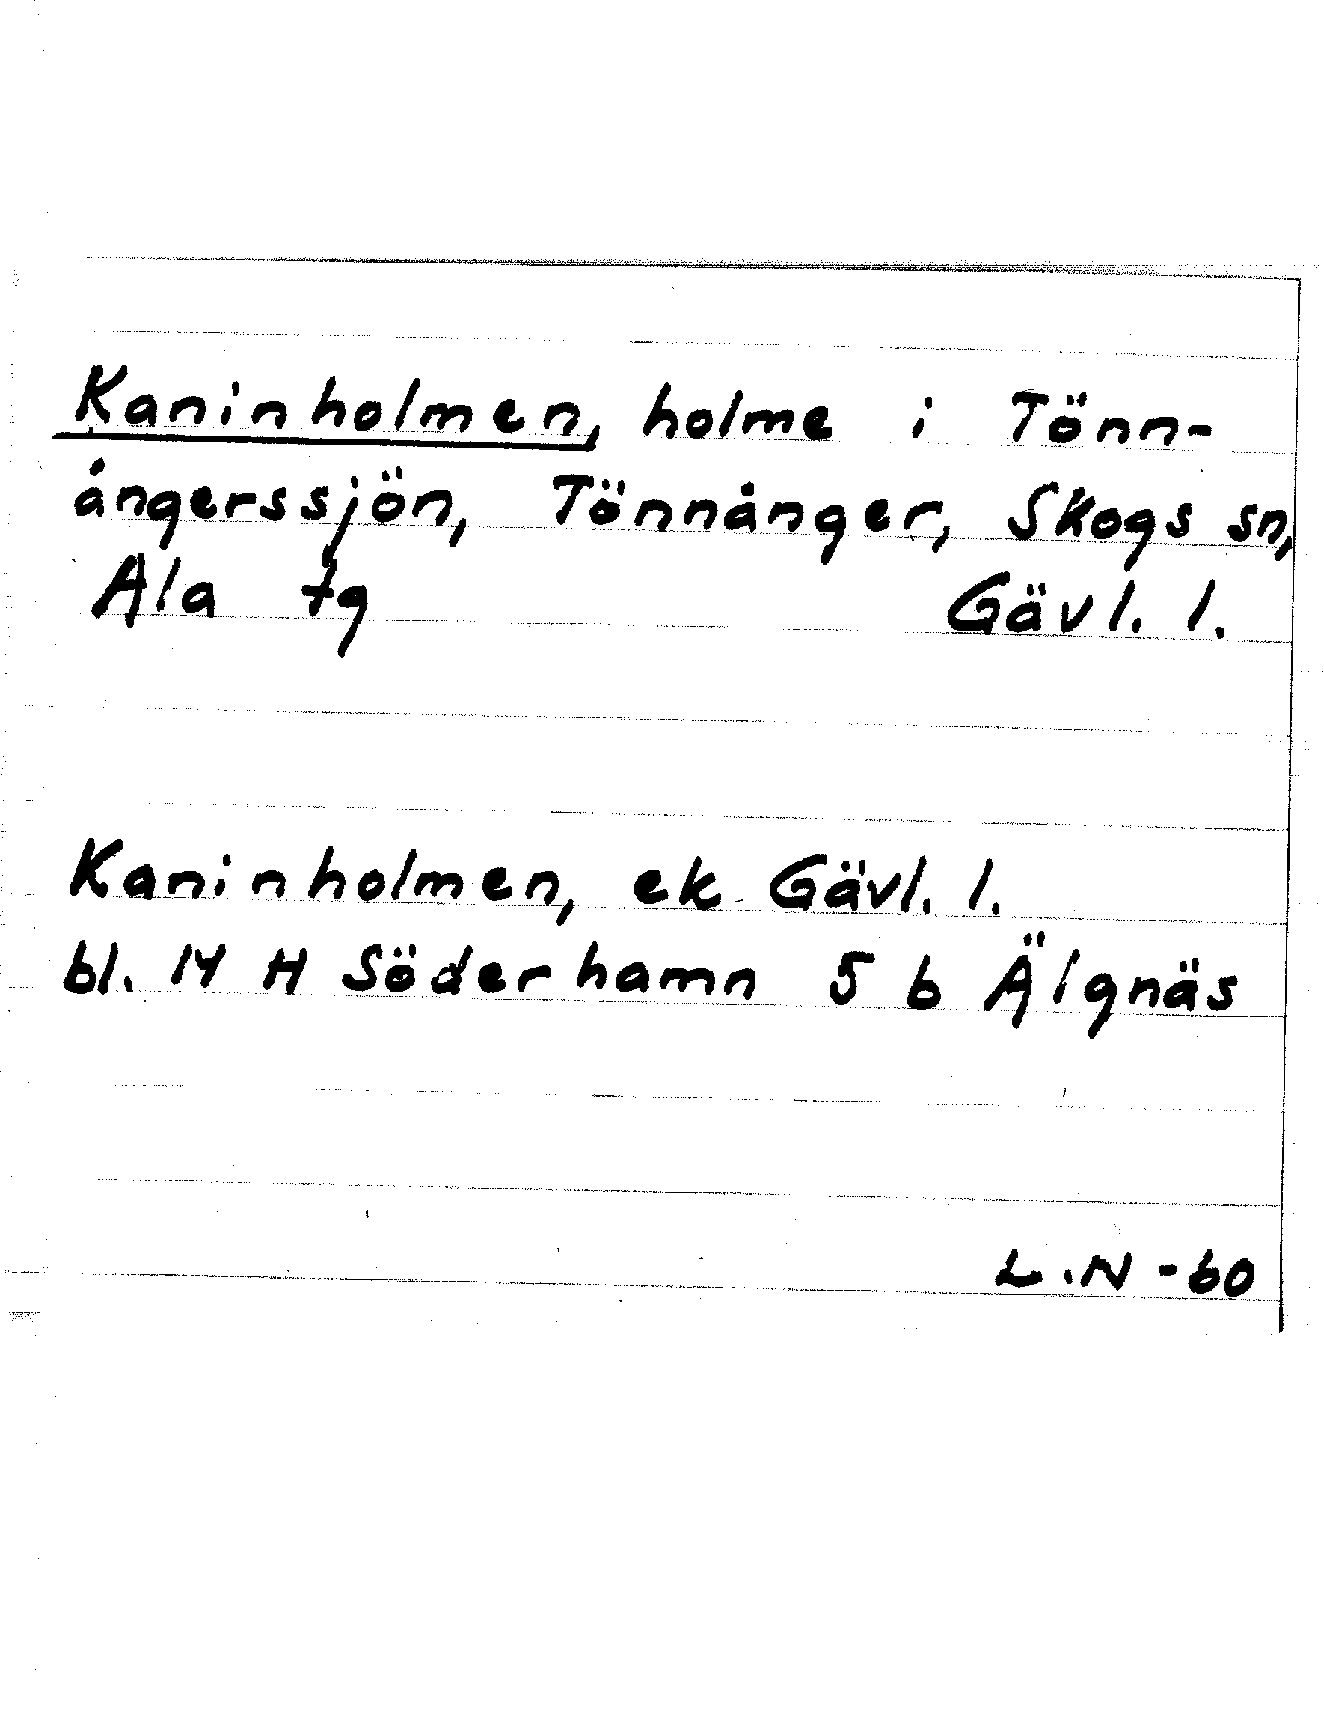 Kaninholmen, holme i Tönn-
ångerssjön, Tönnånger, Skogs sn,
Ala tg Gävl. l.
Kaninholmen, ek Gävl. l.
bl. 14 H Söderhamn 5 b Älgnäs
L.N -60